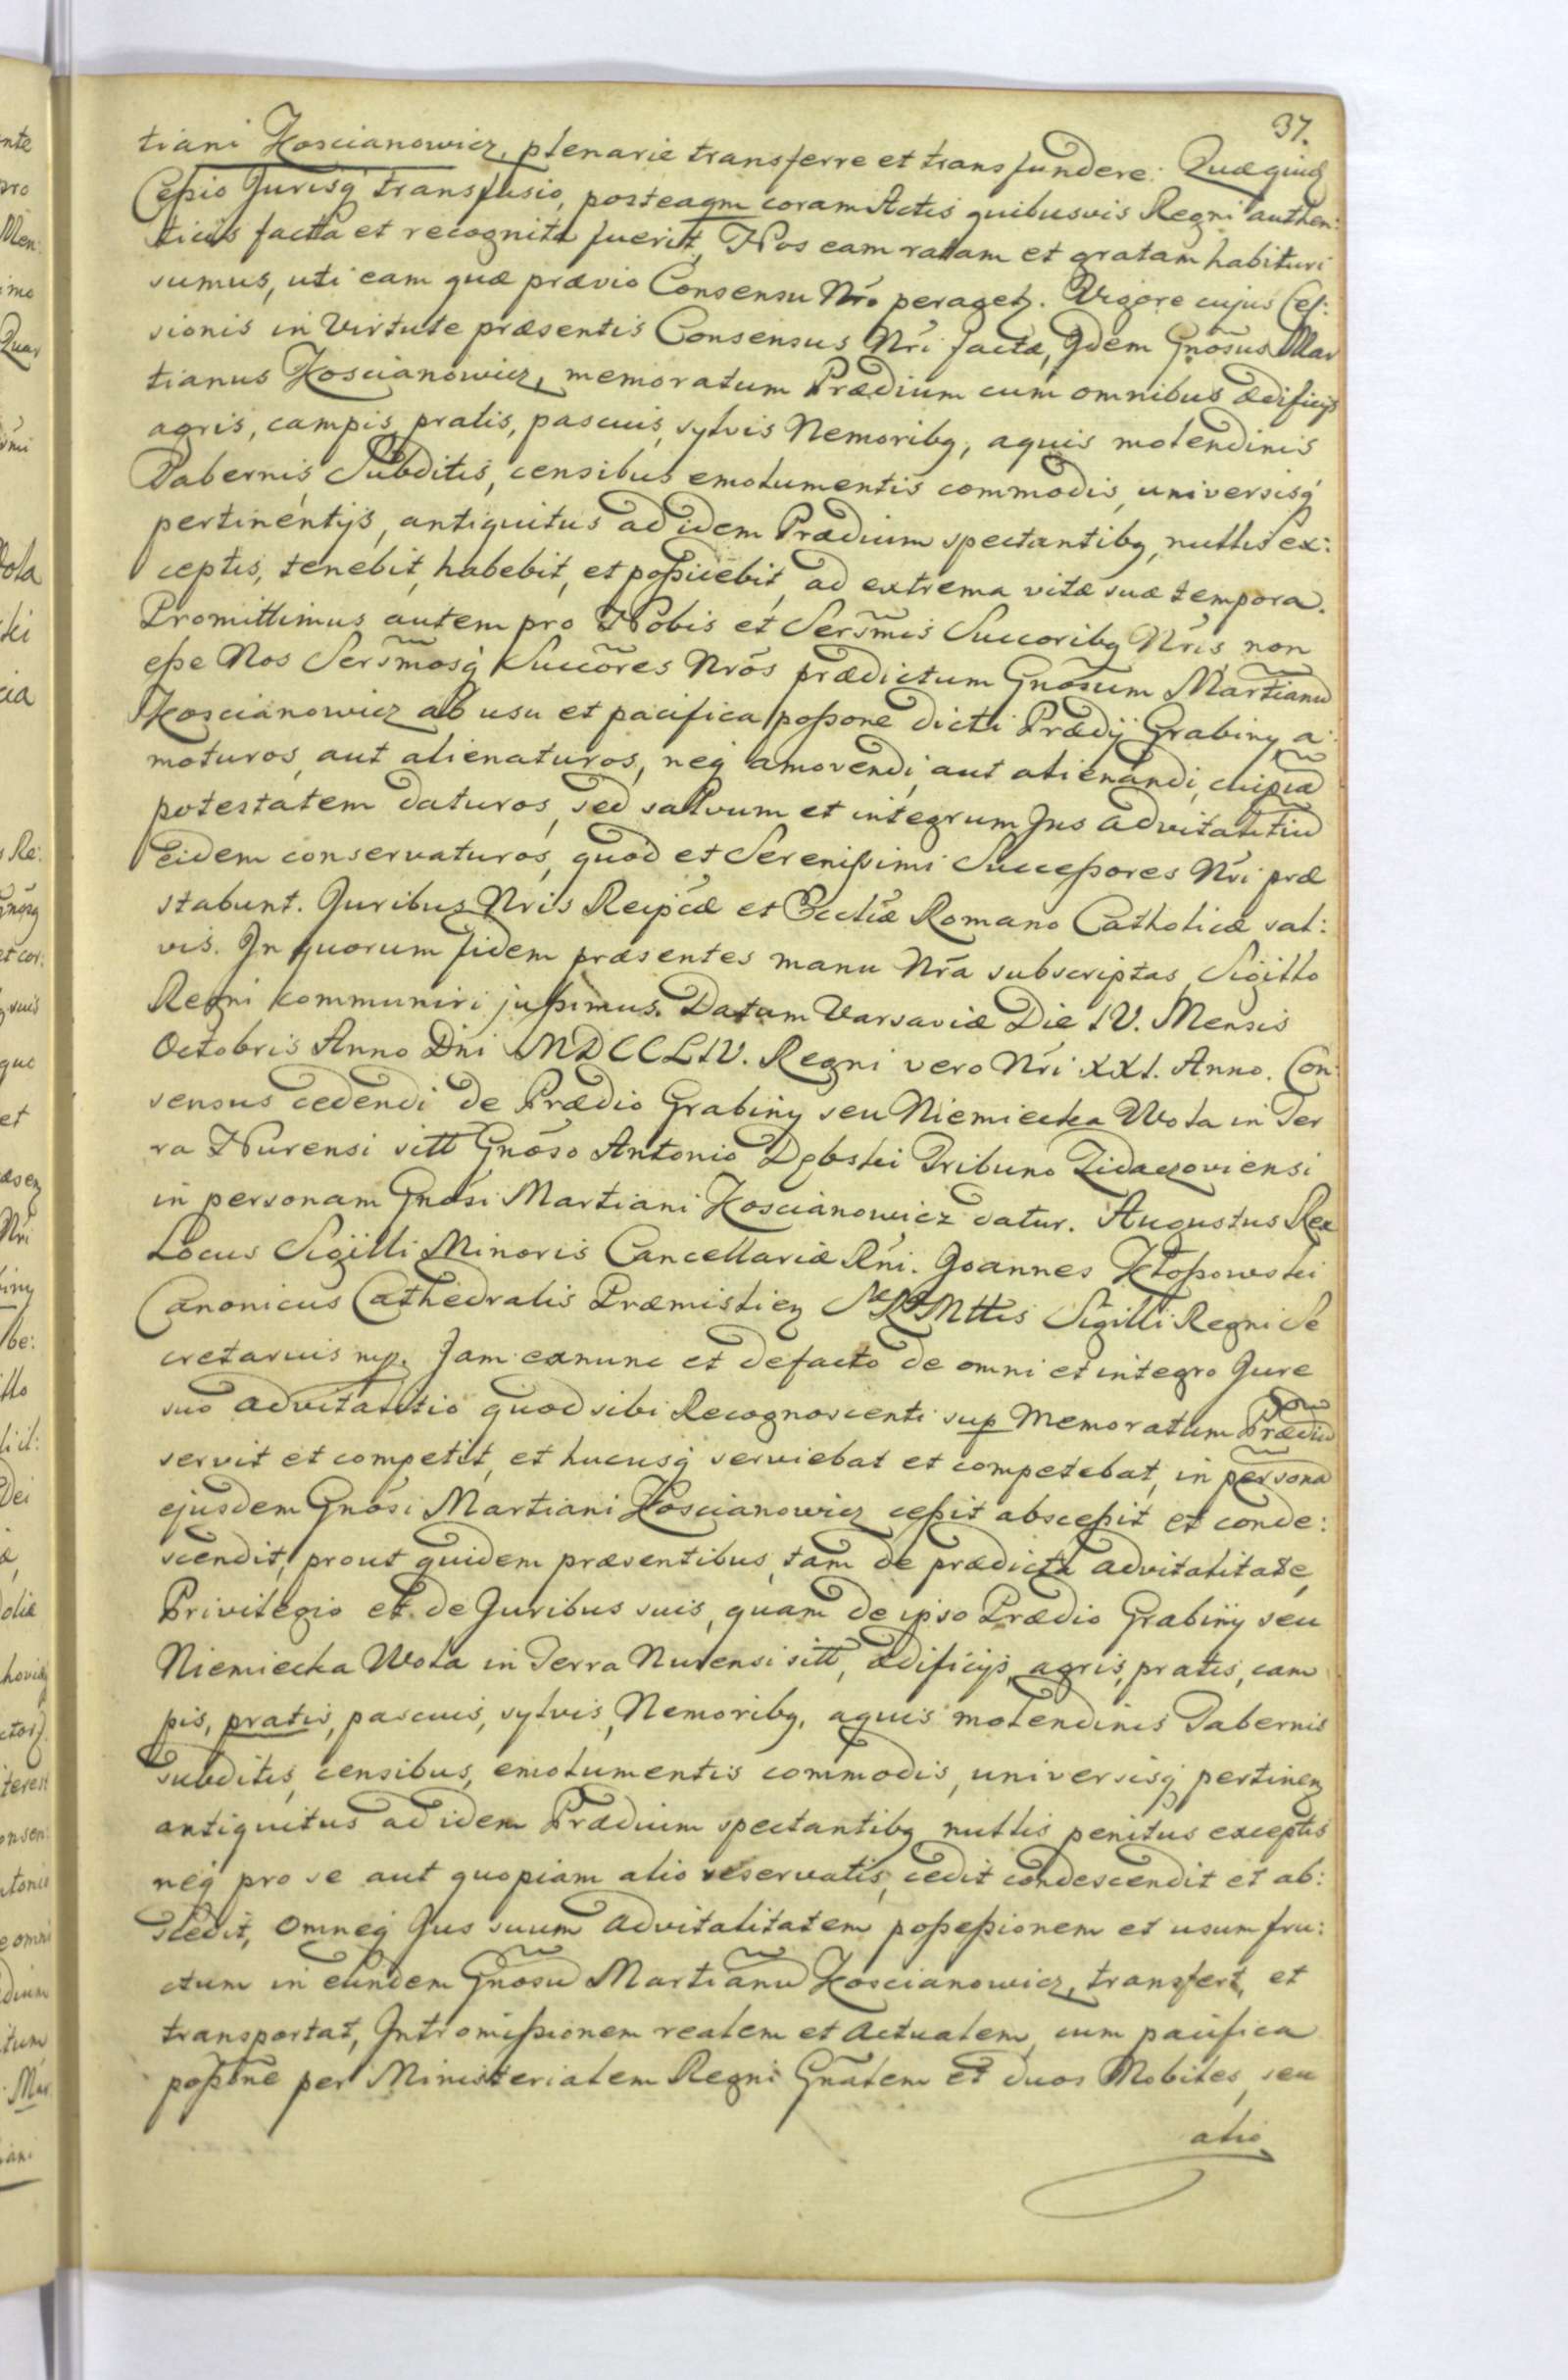 37.
tiani Koscianowicz, plenarie transferre et transfundere. Quæquid
Ceßio Jurisq́ transfusio, posteaqm coram Actis quibusvis Regni authen:
ticis facta et recognita fuerit, Nos eam ratam et gratam habituri
sumus, uti eam quæ prævio Consensu Nr̃o peragetz. Vigore cujus Ceſ:
sionis in Virtute præsentis Consensus Nr̃i factæ, Jdem Gnõsus Mar
tianus Koscianowicz, memoratum Prædium cum omnibus ædificijs
agris, campis, pratis, pascuis, sylvis Nemoribq, aquis molendinis
Tabernis Subditis, censibus emolumentis commodis, universisq́
pertinentijs, antiquitus ad idem Prædium spectantibq, nullis ex:
ceptis, tenebit, habebit, et poßidebit, ad extrema vitæ suæ tempora.
Promittimus autem pro Nobis et Sersm̃is Succoribq Nr̃is, non
eße Nos Sersm̃osq́ Succõres Nrõs prædictum Gnõsum Martianũ
Koscianowicz ab usu et pacifica poßone dicti Prædij Grabiny a:
moturos, aut alienaturos, neq́ amovendi, aut alienandi, cuipiã
potestatem daturos, sed salvum et integrum Jus advitalitiũ
Eidem conservaturos, quod et Serenißimi Succeßores Nr̃i præ
stabunt. Juribus Nr̃is Reipcæ et Eccliæ Romano Catholicæ sal:
vis. Jn quorum fidem præsentes manu Nr̃a subscriptas, Sigillo
Regni communiri jußimus. Datum Varsaviæ Die IV. Mensis
Octobris Anno Dni MDCCLIV. Regni vero Nr̃i XXI. Anno. Con:
sensus cedendi de Prædio Grabiny seu Niemiecka Wola in Ter
ra Nurensi sitt Gnõso Antonio Dębski Tribuno Zidaczoviensi
in personam Gnõsi Martiani Koscianowicz datur. Augustus Rex
Locus Sigilli Minoris Cancellariæ Rni. Joannes Kłoßowski
Canonicus Cathedralis Præmisliez Sæ Ræ Mttis Sigilli Regni Se
cretarius mp. Jam exnunc et defacto de omni et integro Jure
suo advitalitio quod sibi Recognoscenti sup Memoratum Prædiũ
servit et competit, et hucusq́ serviebat et competebat, in personã
ejusdem Gnõsi Martiani Koscianowicz ceßit absceßit et conde:
scendit, prout quidem præsentibus, tam de prædicta advitalitate,
Privilegio et de Juribus suis, quam de ipso Prædio Grabiny seu
Niemiecka Wola in Terra Nurensi sitt, ædificijs, agris, pratis, cam
pis, pratis, pascuis, sylvis, Nemoribq, aquis molendinis Tabernis
subditis, censibus, emolumentis commodis, universisq́ pertinez
antiquitus ad idem Prædium spectantibq nullis penitus exceptis
neq́ pro se aut quopiam alio reservatis, cedit condescendit et ab:
scedit, omneq́ Jus suum advitalitatem poßeßionem et usum fru:
ctum in eundem Gnõsũ Martianũ Koscianowicz, transfert, et
transportat, Jntromißionem realem et actualem, cum pacifica
poßõne per Ministerialem Regni Gnãlem et duos Nobiles, seu
alio